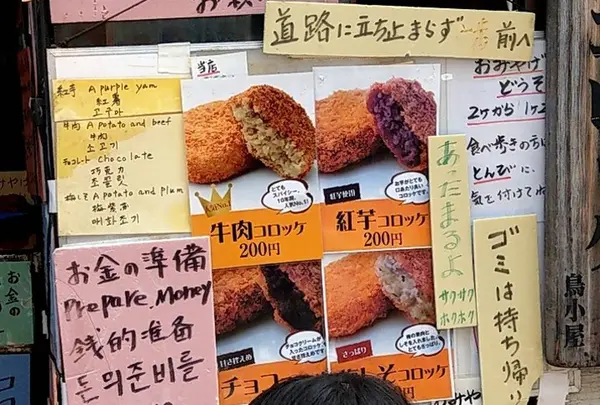 道路に立ち止まらず一歩前へ
当店
紅芋 A purple yam
紅薯
고구마
牛肉 A potato and beef
牛肉
소고기
チョコレート Chocolate
巧克力
초콜릿
梅しそ A potato and plum
梅紫蘇
매화조기
とても
スパイシー。
人気No.1
牛肉コロッケ
200円
紅芋使用
お芋がとても
口あたり良い
コロッケです。
紅芋コロッケ
200円
甘さ控えめ
チョコクリームが
入ったコロッケ
さっぱり
とてもさっぱり。
そコロッケ
おみやげ
どうぞ
2ケから
食べ歩きの方は
とんびに
気を付けて
あったまるよ
サクサク
ホクホク
ゴミは持ち帰り
お金の準備
Prepare Money
銭的准备
돈의준비를
お金の
鳥小屋